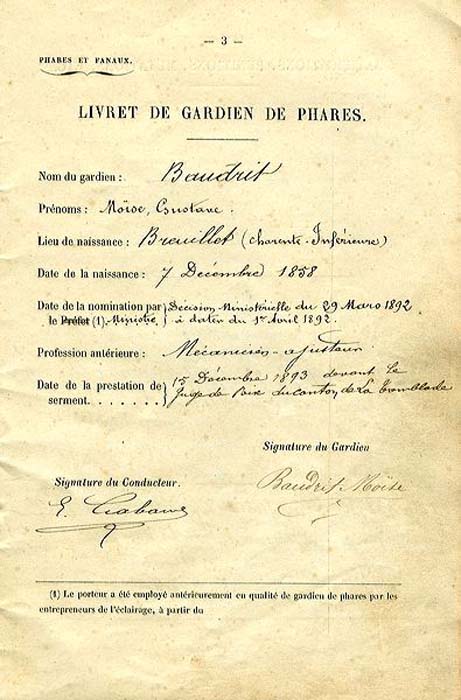 — 3 —
PHARES ET FANAUX.
LIVRET DE GARDIEN DE PHARES.
Nom du gardien : Baudrit
Prénoms : Moïse, Gustave.
Lieu de naissance : Breuillet (Charente-Inférieure)
Date de la naissance : 7 Décembre 1858
Date de la nomination par } Décision Ministérielle du 29 Mars 1892
le Préfet (1). Ministre } à dater du 1er Avril 1892.
Profession antérieure : Mécanicien-ajusteur
Date de la prestation de } 15 Décembre 1893 devant le
serment. . . . . . . } Juge de Paix du canton de La Tremblade
Signature du Gardien
Signature du Conducteur.
Baudrit Moïse
E.
(1) Le porteur a été employé antérieurement en qualité de gardien de phares par les
entrepreneurs de l'éclairage, à partir du